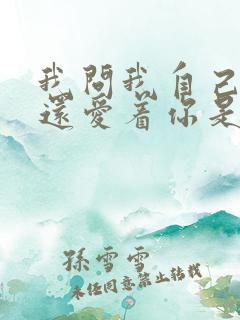 我問我自己
還愛着你是
孫雪雪
未经同意禁止转载